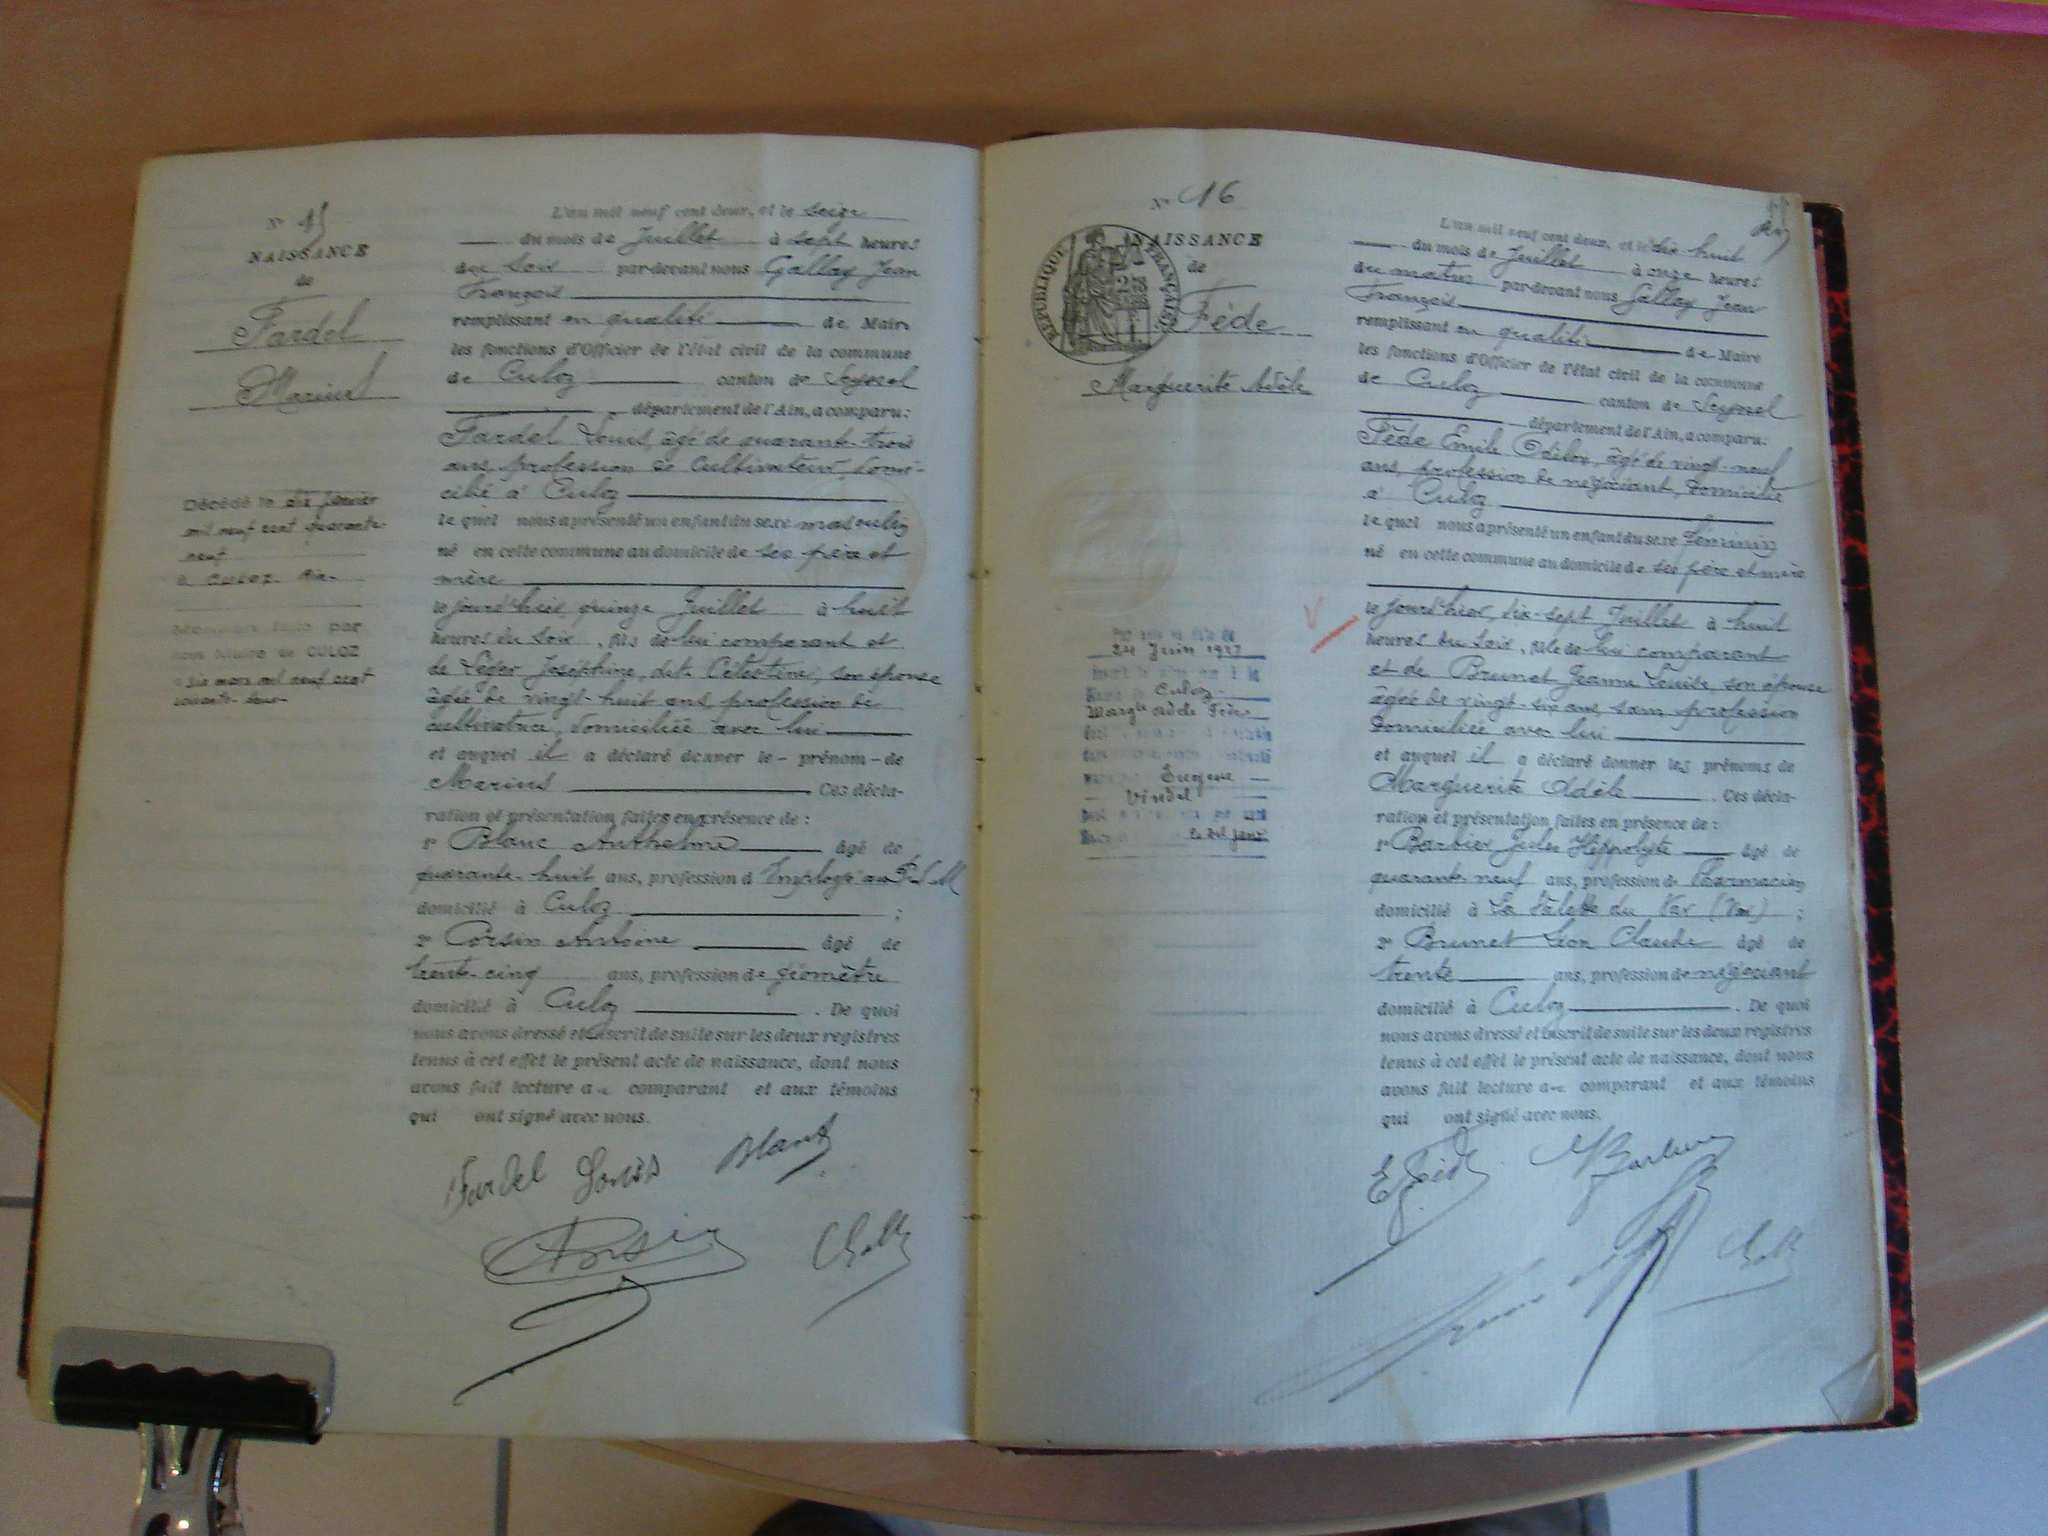 N° 15
NAISSANCE
de
Fardel
Marius
Décédé le dix janvier
mil neuf cent quarante
neuf
à CULOZ Ain
Mention faite par
nous Maire de CULOZ
six mars mil neuf cent
L'an mil neuf cent deux, et le seize
du mois de Juillet à sept heures
du soir par-devant nous Gallay Jean
François
remplissant en qualité de Maire
les fonctions d'Officier de l'état civil de la commune
de Culoz canton de Seyssel
département de l'Ain, a comparu:
Fardel Louis, âgé de quarante-trois
ans, profession de cultivateur, domi-
cilié à Culoz
lequel nous a présenté un enfant du sexe masculin
né en cette commune au domicile de ses père et
mère
le jour d'hier quinze Juillet à huit
heures du soir, fils de lui comparant et
de Léger Joséphine, dite Célestine, son épouse
âgée de vingt-huit ans, profession de
cultivatrice, domiciliée avec lui
et auquel il a déclaré donner le prénom de
Marius Ces décla-
ration et présentation faites en présence de :
1° Blanc Anthelme âgé de
quarante-huit ans, profession d'Employé au P.L.M
domicilié à Culoz ;
2° Corsin Antoine âgé de
trente-cinq ans, profession de géomètre
domicilié à Culoz . De quoi
nous avons dressé et inscrit de suite sur les deux registres
tenus à cet effet le présent acte de naissance, dont nous
avons fait lecture au comparant et aux témoins
qui ont signé avec nous.
Fardel Louis Blanc
N° 16
NAISSANCE
de
RÉPUBLIQUE FRANÇAISE
Fède
Marguerite Adèle
24 Juin 1927
Culoz
Margte Adèle Fède
Eugène
Vindel
L'an mil neuf cent deux, et le dix huit
du mois de Juillet à onze heures
du matin par-devant nous Gallay Jean
François
remplissant en qualité de Maire
les fonctions d'Officier de l'état civil de la commune
de Culoz canton de Seyssel
département de l'Ain, a comparu:
Fède Emile Odilon, âgé de vingt-neuf
ans, profession de négociant, domicilié
à Culoz
lequel nous a présenté un enfant du sexe féminin
né en cette commune au domicile de ses père et mère
le jour d'hier, dix-sept Juillet à huit
heures du soir, fille de lui comparant
et de Brunet Jeanne Louise, son épouse
âgée de vingt-six ans, sans profession
domiciliée avec lui
et auquel il a déclaré donner les prénoms de
Marguerite Adèle . Ces décla-
ration et présentation faites en présence de :
1° Barbier Jules Hippolyte âgé de
quarante neuf ans, profession de Pharmacien
domicilié à La Valette du Var (Var) ;
2° Brunet Léon Claude âgé de
trente ans, profession de négociant
domicilié à Culoz . De quoi
nous avons dressé et inscrit de suite sur les deux registres
tenus à cet effet le présent acte de naissance, dont nous
avons fait lecture au comparant et aux témoins
qui ont signé avec nous.
E Fède